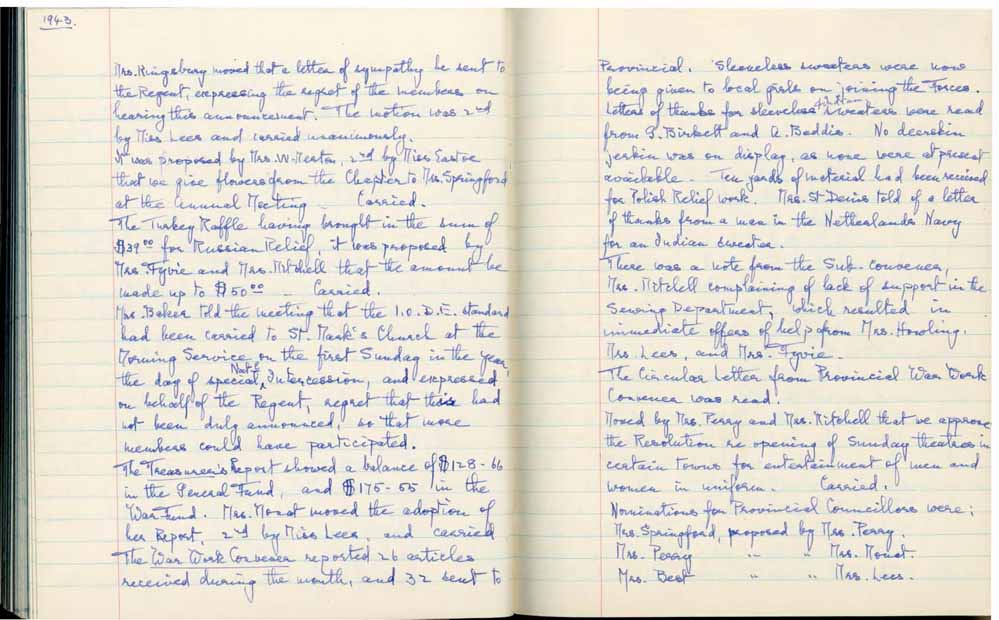 1943.
Mrs. Kingsbury moved that a letter of sympathy be sent to
the Regent, expressing the regret of the members on
hearing this announcement. The motion was 2nd
by Miss Lees and carried unanimously.
It was proposed by Mrs. W. Merton, 2nd by Miss Eastoe
that we give flowers from the Chapter to Mrs. Springford
at the Annual Meeting - Carried.
The Turkey Raffle having brought in the sum of
$39.00 for Russian Relief, it was proposed by
Mrs. Fyvie and Mrs. Mitchell that the amount be
made up to $50.00 - Carried.
Mrs. Baker told the meeting that the I.O.D.E. standard
had been carried to St. Mark's Church at the
Morning Service on the first Sunday in the year,
the day of special Nat'l Intercession, and expressed,
on behalf of the Regent, regret that this had
not been duly announced, so that more
members could have participated.
The Treasurer's Report showed a balance of $128-66
in the General Fund, and $175-55 in the
War Fund. Mrs. Mouat moved the adoption of
her Report, 2nd by Miss Lees, and carried
The War Work Convener reported 26 articles
received during the month, and 32 sent to
Provincial. Sleeveless sweaters were now
being given to local girls on joining the Forces.
Letters of thanks for sleeveless sweaters were read
from J. Birkett and A. Beddis. No deerskin
jerkin was on display, as none were at present
available. Ten yards of material had been received
for Polish Relief work. Mrs. St Denis told of a letter
of thanks from a man in the Netherlands Navy
for an Indian sweater.
There was a note from the Sub-convener,
Mrs. Mitchell complaining of lack of support in the
Sewing Department, which resulted in
immediate offers of help from Mrs. Howling.
Mrs. Lees, and Mrs. Fyvie.
The Circular Letter from Provincial War Work
Convener was read.
Moved by Mrs. Perry and Mrs. Mitchell that we approve
the Resolution re opening of Sunday theatres in
certain towns for entertainment of men and
women in uniform. Carried.
Nominations for Provincial Councillors were;
Mrs. Springford, proposed by Mrs. Perry.
Mrs. Perry " " Mrs. Mouat.
Mrs. Best " " Mrs. Lees.